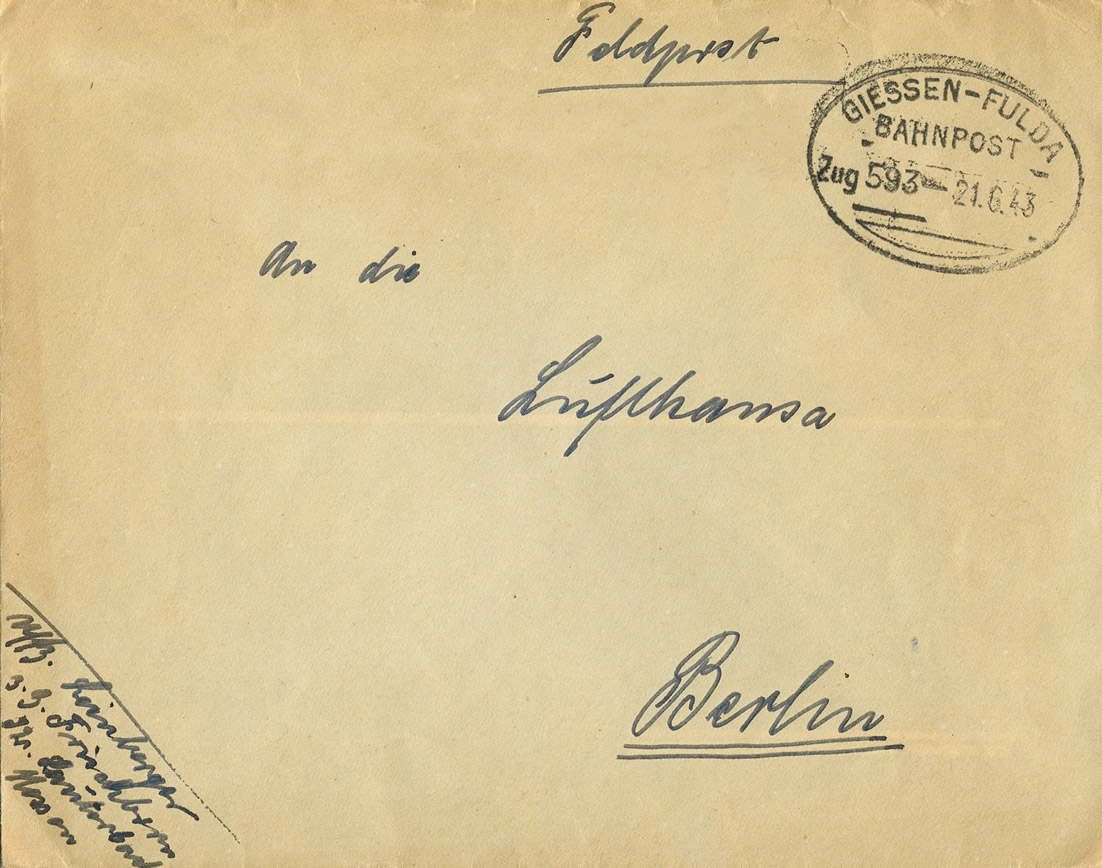 Feldpost
GIESSEN-FULDA
BAHNPOST
Zug 593 21.6.43
An die
Lufthansa
Berlin
Uffz.
z. Z.
Hessen